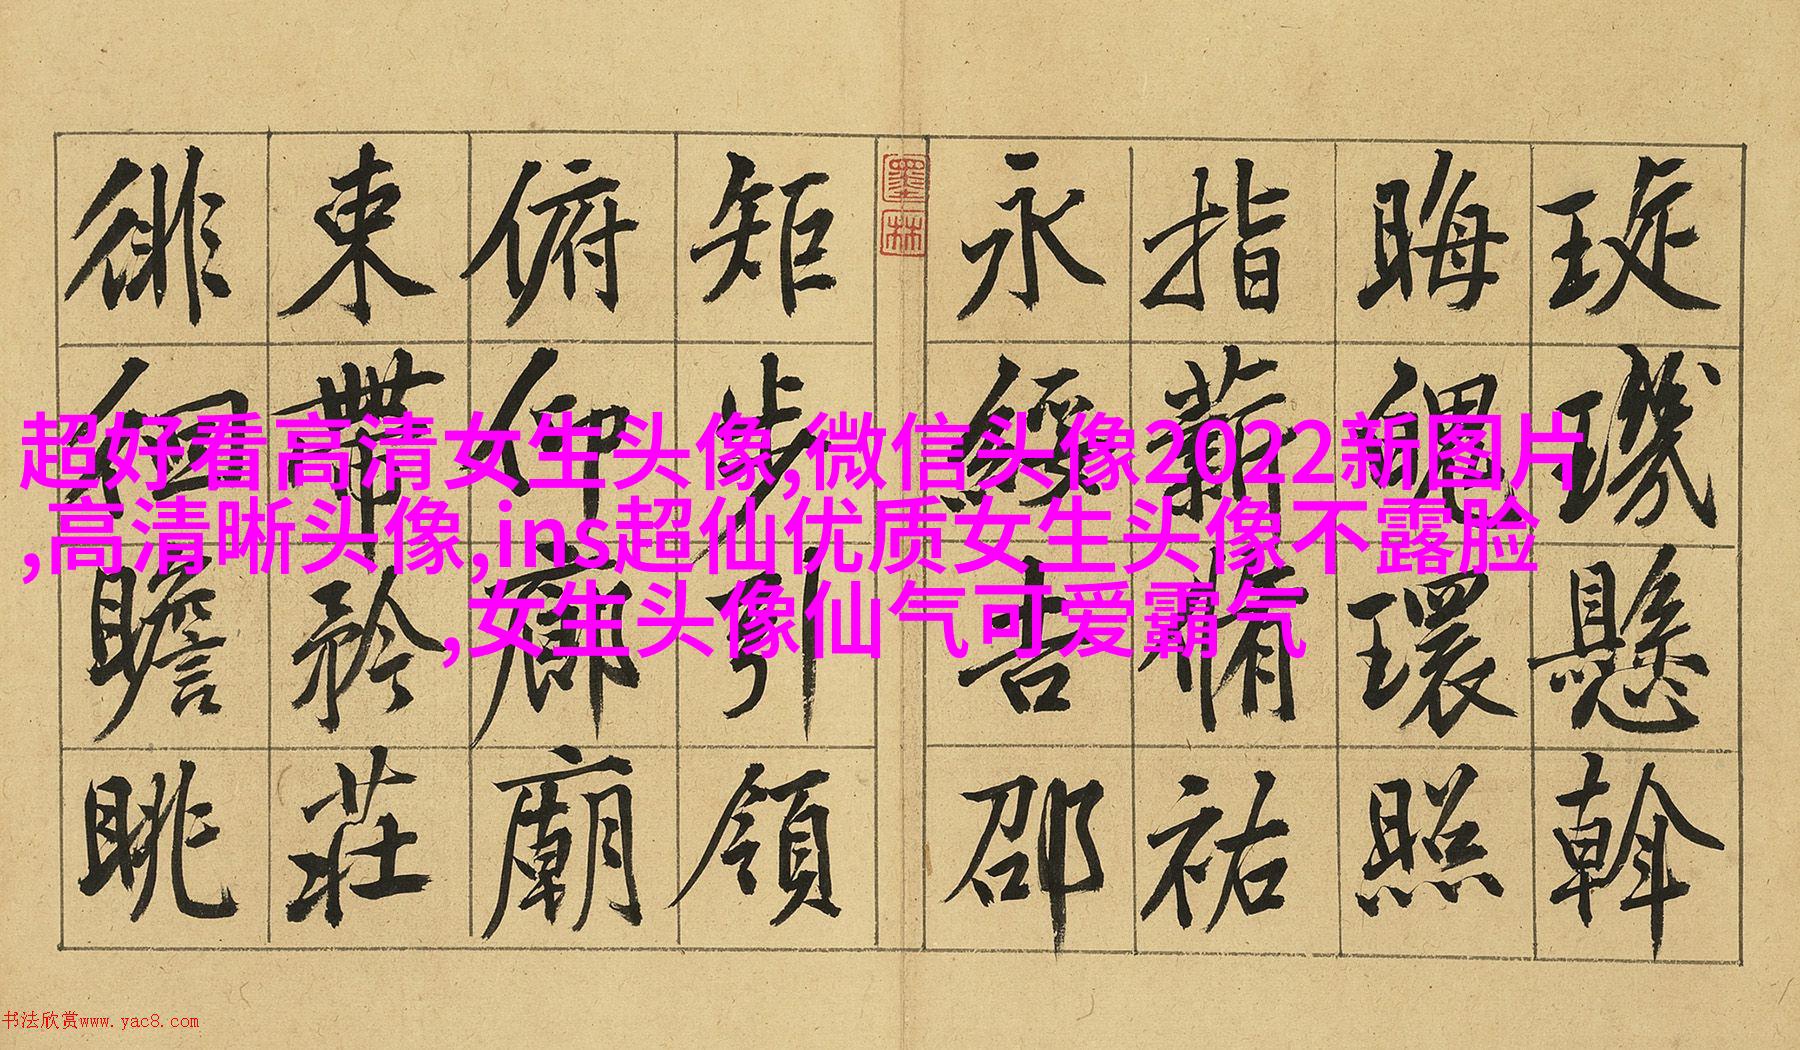 璇璣懸斡
晦魄環照
指薪脩祐
永綏吉邵
墨林
矩步引領
俯仰廊廟
束帶矜莊
徘徊瞻眺
超好看高清女生头像,微信头像2022新图片
,高清晰头像,ins超仙优质女生头像不露脸
,女生头像仙气可爱霸气
书法欣赏www.yac8.com